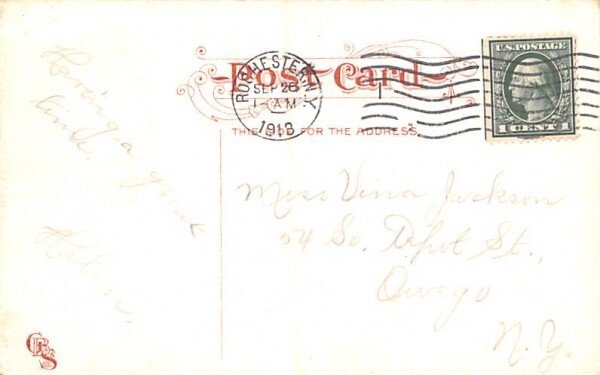 Post Card
ROCHESTER, N.Y.
SEP 26
1-AM
1913
U.S. POSTAGE
1 CENT 1
THIS SIDE FOR THE ADDRESS.
Having a great
time.
Helen.
Miss Vina Jackson
54 So. Depot St.,
Owego
N.Y.